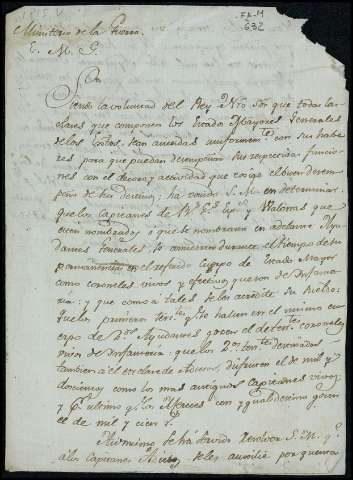 FA-M
632
Ministerio de la Guerra.
E. M. G.
Siendo la voluntad del Rey Nro Sor que todas las
clases que componen los Estados Mayores Generales
de los estan atendidas uniformemte con sus habe
res para que puedan desempeñar sus respectivas funcio
nes con el decoro y actividad que exige el buen desem
peño de sus destinos; ha venido S. M. en determinar
que los Capitanes de Rs Gs y Walonas que
esten nombrados, o que se nombraren en adelante Ayu
dantes Generales, lo durante el tiempo de su
permanencia en el referido Cuerpo de Estado Mayor
como coroneles vivos y efectivos que son de Infante
ria: y que como a tales se les acredite su sueldo:
que los primeros tentes qe se hallen en el mismo cu
erpo de Ayudantes gocen el de tente coroneles
vivos de Infanteria: que los 2os tentes destinados
tambien a el en clase de Adictos, disfruten el de mil y
docientos como los mas antiguos capitanes vivos
y pr ultimo qe los Alfereces con ygual destino gocen
el de mil y cien rs
Asimismo se ha servido resolver S. M. qe
a los Capitanes se les auxilie por quenta